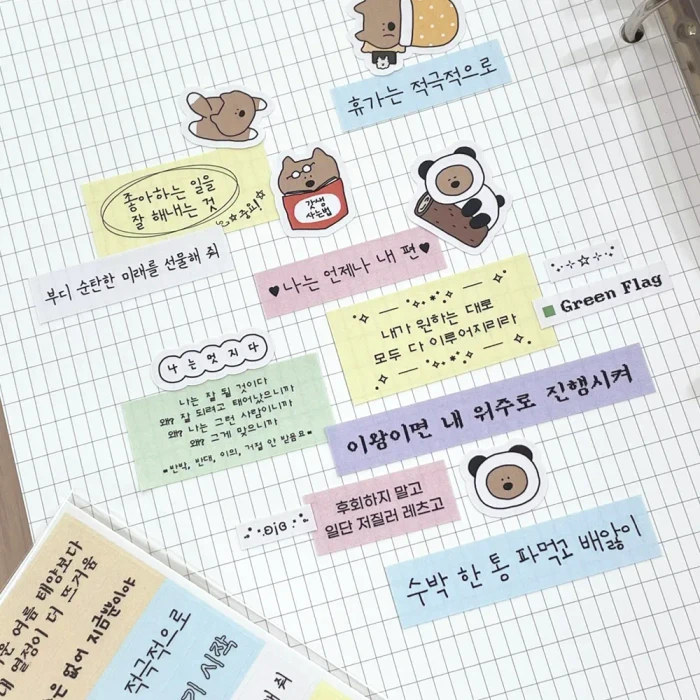 휴가는 적극적으로
좋아하는 일을
잘 해내는 것
주요!
갓생
사는법
부디 순탄한 미래를 선물해 줘
♥나는 언제나 내 편♥
내가 원하는 대로
모두 다 이루어지리라
Green Flag
나는멋지다
나는 잘 될 것이다
왜? 잘 되려고 태어났으니까
왜? 나는 그런 사람이니까
왜? 그게 맞으니까
*반박, 반대, 이의, 거절 안 받음요*
이왕이면 내 위주로 진행시켜
후회하지 말고
일단 저질러 레츠고
수박 한 통 파먹고 배앓이
여름 태양보다
열정이 더 뜨거움
은 없어 지금뿐이야
적극적으로
시작
줘